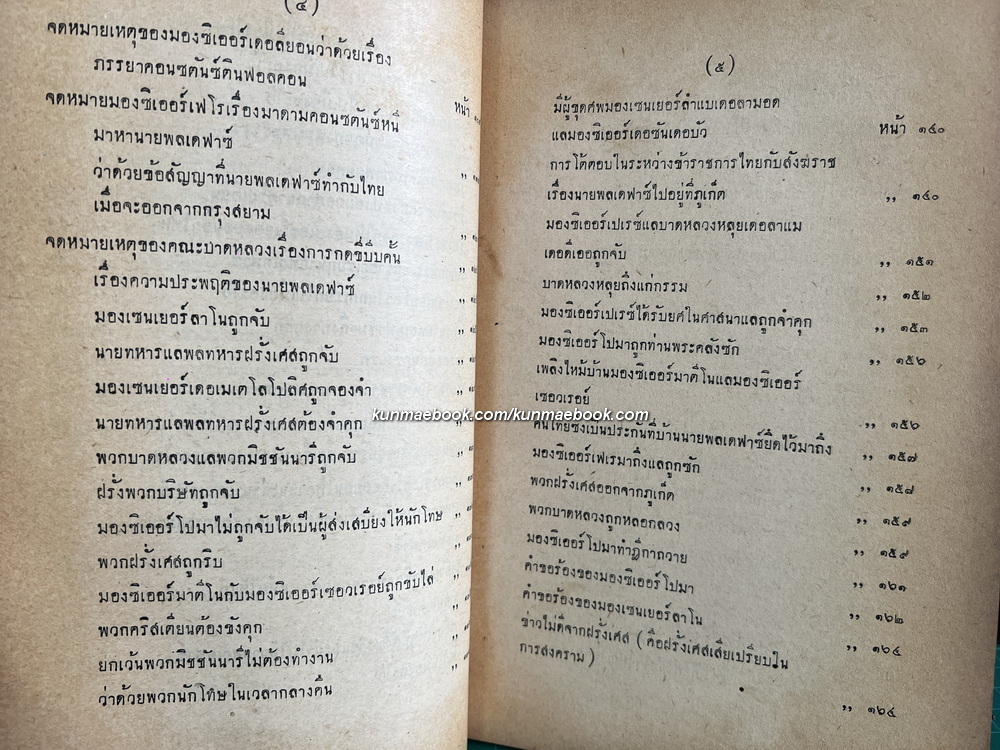 (๔)
จดหมายเหตุของมองซิเออร์เดอลียอนว่าด้วยเรื่อง
ภรรยาคอนซตันซ์ตินฟอลคอน
หน้า
จดหมายมองซิเออร์เฟโรเรื่องมาดามคอนซตันซ์หนี
มาหานายพลเดฟาซ์
ว่าด้วยข้อสัญญาที่นายพลเดฟาซ์ทำกับไทย
เมื่อจะออกจากกรุงสยาม
จดหมายเหตุของคณะบาดหลวงเรื่องการกดขี่บีบคั้น
เรื่องความประพฤติของนายพลเดฟาซ์
มองเซนเยอร์ลาโนถูกจับ
นายทหารแลพลทหารฝรั่งเศสถูกจับ
มองเซนเยอร์เดอเมเตโลโปลิศถูกจองจำ
นายทหารแลพลทหารฝรั่งเศสต้องจำคุก
พวกบาดหลวงแลพวกมิชชันนารีถูกจับ
ฝรั่งพวกบริษัทถูกจับ
มองซิเออร์โปมาไม่ถูกจับได้เป็นผู้ส่งเสบียงให้นักโทษ
พวกฝรั่งเศสถูกริบ
มองซิเออร์มาตีโนกับมองซิเออร์เซอวเรอย์ถูกขับไล่
พวกคริสเตียนต้องขังคุก
ยกเว้นพวกมิชชันนารีไม่ต้องทำงาน
ว่าด้วยพวกนักโทษในเวลากลางคืน
(๕)
มีผู้ขุดศพมองเซนเยอร์ลำแบเดอลามอต
แลมองซิเออร์เดอซันเดอบัว หน้า ๑๔๐
การโต้ตอบในระหว่างข้าราชการไทยกับสังฆราช
เรื่องนายพลเดฟาซ์ไปอยู่ที่ภูเก็ต ,, ๑๔๐
มองซิเออร์เปเรซ์แลบาดหลวงหลุยเดอลาแม
เดอดีเออถูกจับ ,, ๑๕๑
บาดหลวงหลุยถึงแก่กรรม ,, ๑๕๒
มองซิเออร์เปเรซ์ได้รับยศในศาสนาแลถูกจำคุก ,, ๑๕๓
มองซิเออร์โปมาถูกท่านพระคลังซัก ,, ๑๕๖
เพลิงไหม้บ้านมองซิเออร์มาตีโนแลมองซิเออร์
เซอวเรอย์ ,, ๑๕๖
คนไทยซึ่งเป็นประกันที่บ้านนายพลเดฟาซ์ยึดไว้มาถึง ,, ๑๕๗
มองซิเออร์เฟเรมาถึงแลถูกซัก ,, ๑๕๗
พวกฝรั่งเศสออกจากภูเก็ต ,, ๑๕๙
พวกบาดหลวงถูกหลอกลวง ,, ๑๕๙
มองซิเออร์โปมาทำฎีกาถวาย ,, ๑๖๑
คำขอร้องของมองซิเออร์โปมา ,, ๑๖๒
คำขอร้องของมองเซนเยอร์ลาโน ,, ๑๖๔
ข่าวไม่ดีจากฝรั่งเศส (คือฝรั่งเศสเสียเปรียบใน
การสงคราม) ,, ๑๖๔
kunmaebook.com/kunmaebook.com